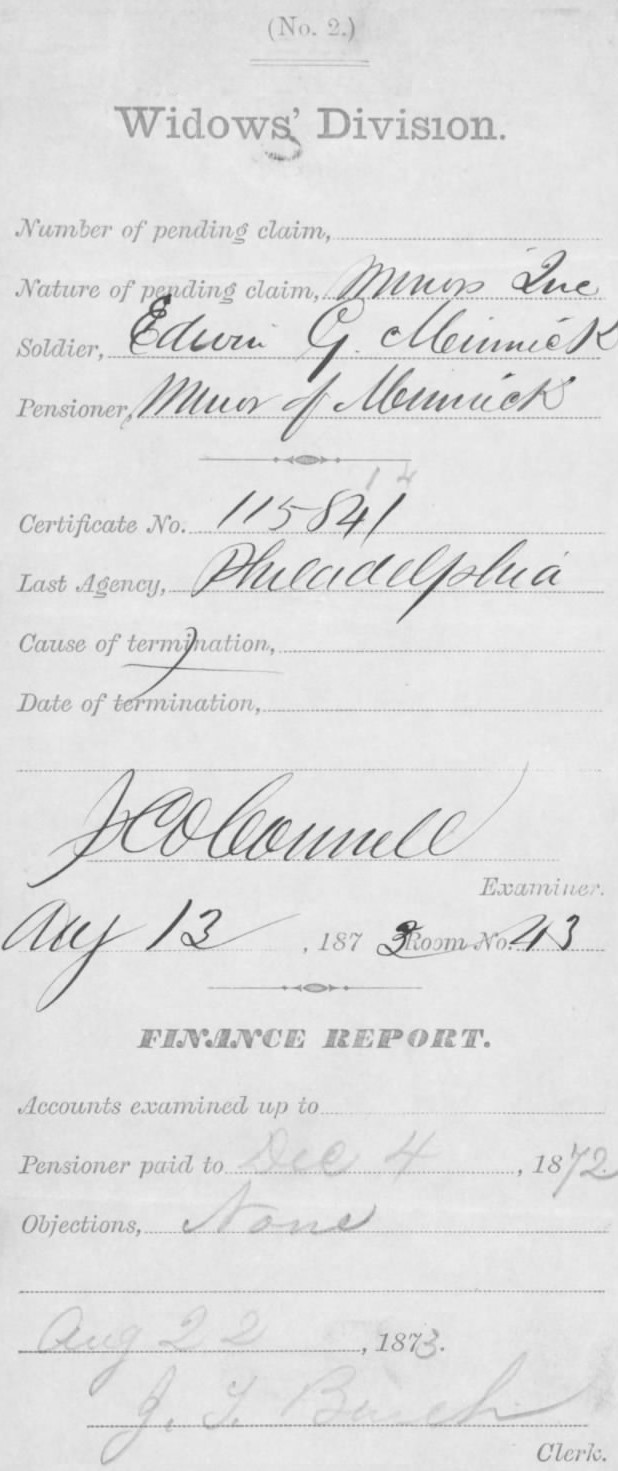 (No. 2.)
Widows' Division.
Number of pending claim,
Nature of pending claim, Minors Inc
Soldier, Edwin G. Minnick
Pensioner, Minor of Minnick
Certificate No. 115841
Last Agency, Philadelphia
Cause of termination,
Date of termination,
J C O Connell
Examiner.
Aug 13, 1873 Room No. 43
FINANCE REPORT.
Accounts examined up to
Pensioner paid to Dec 4, 1872
Objections, None
Aug 22, 1873.
J. T.
Clerk.